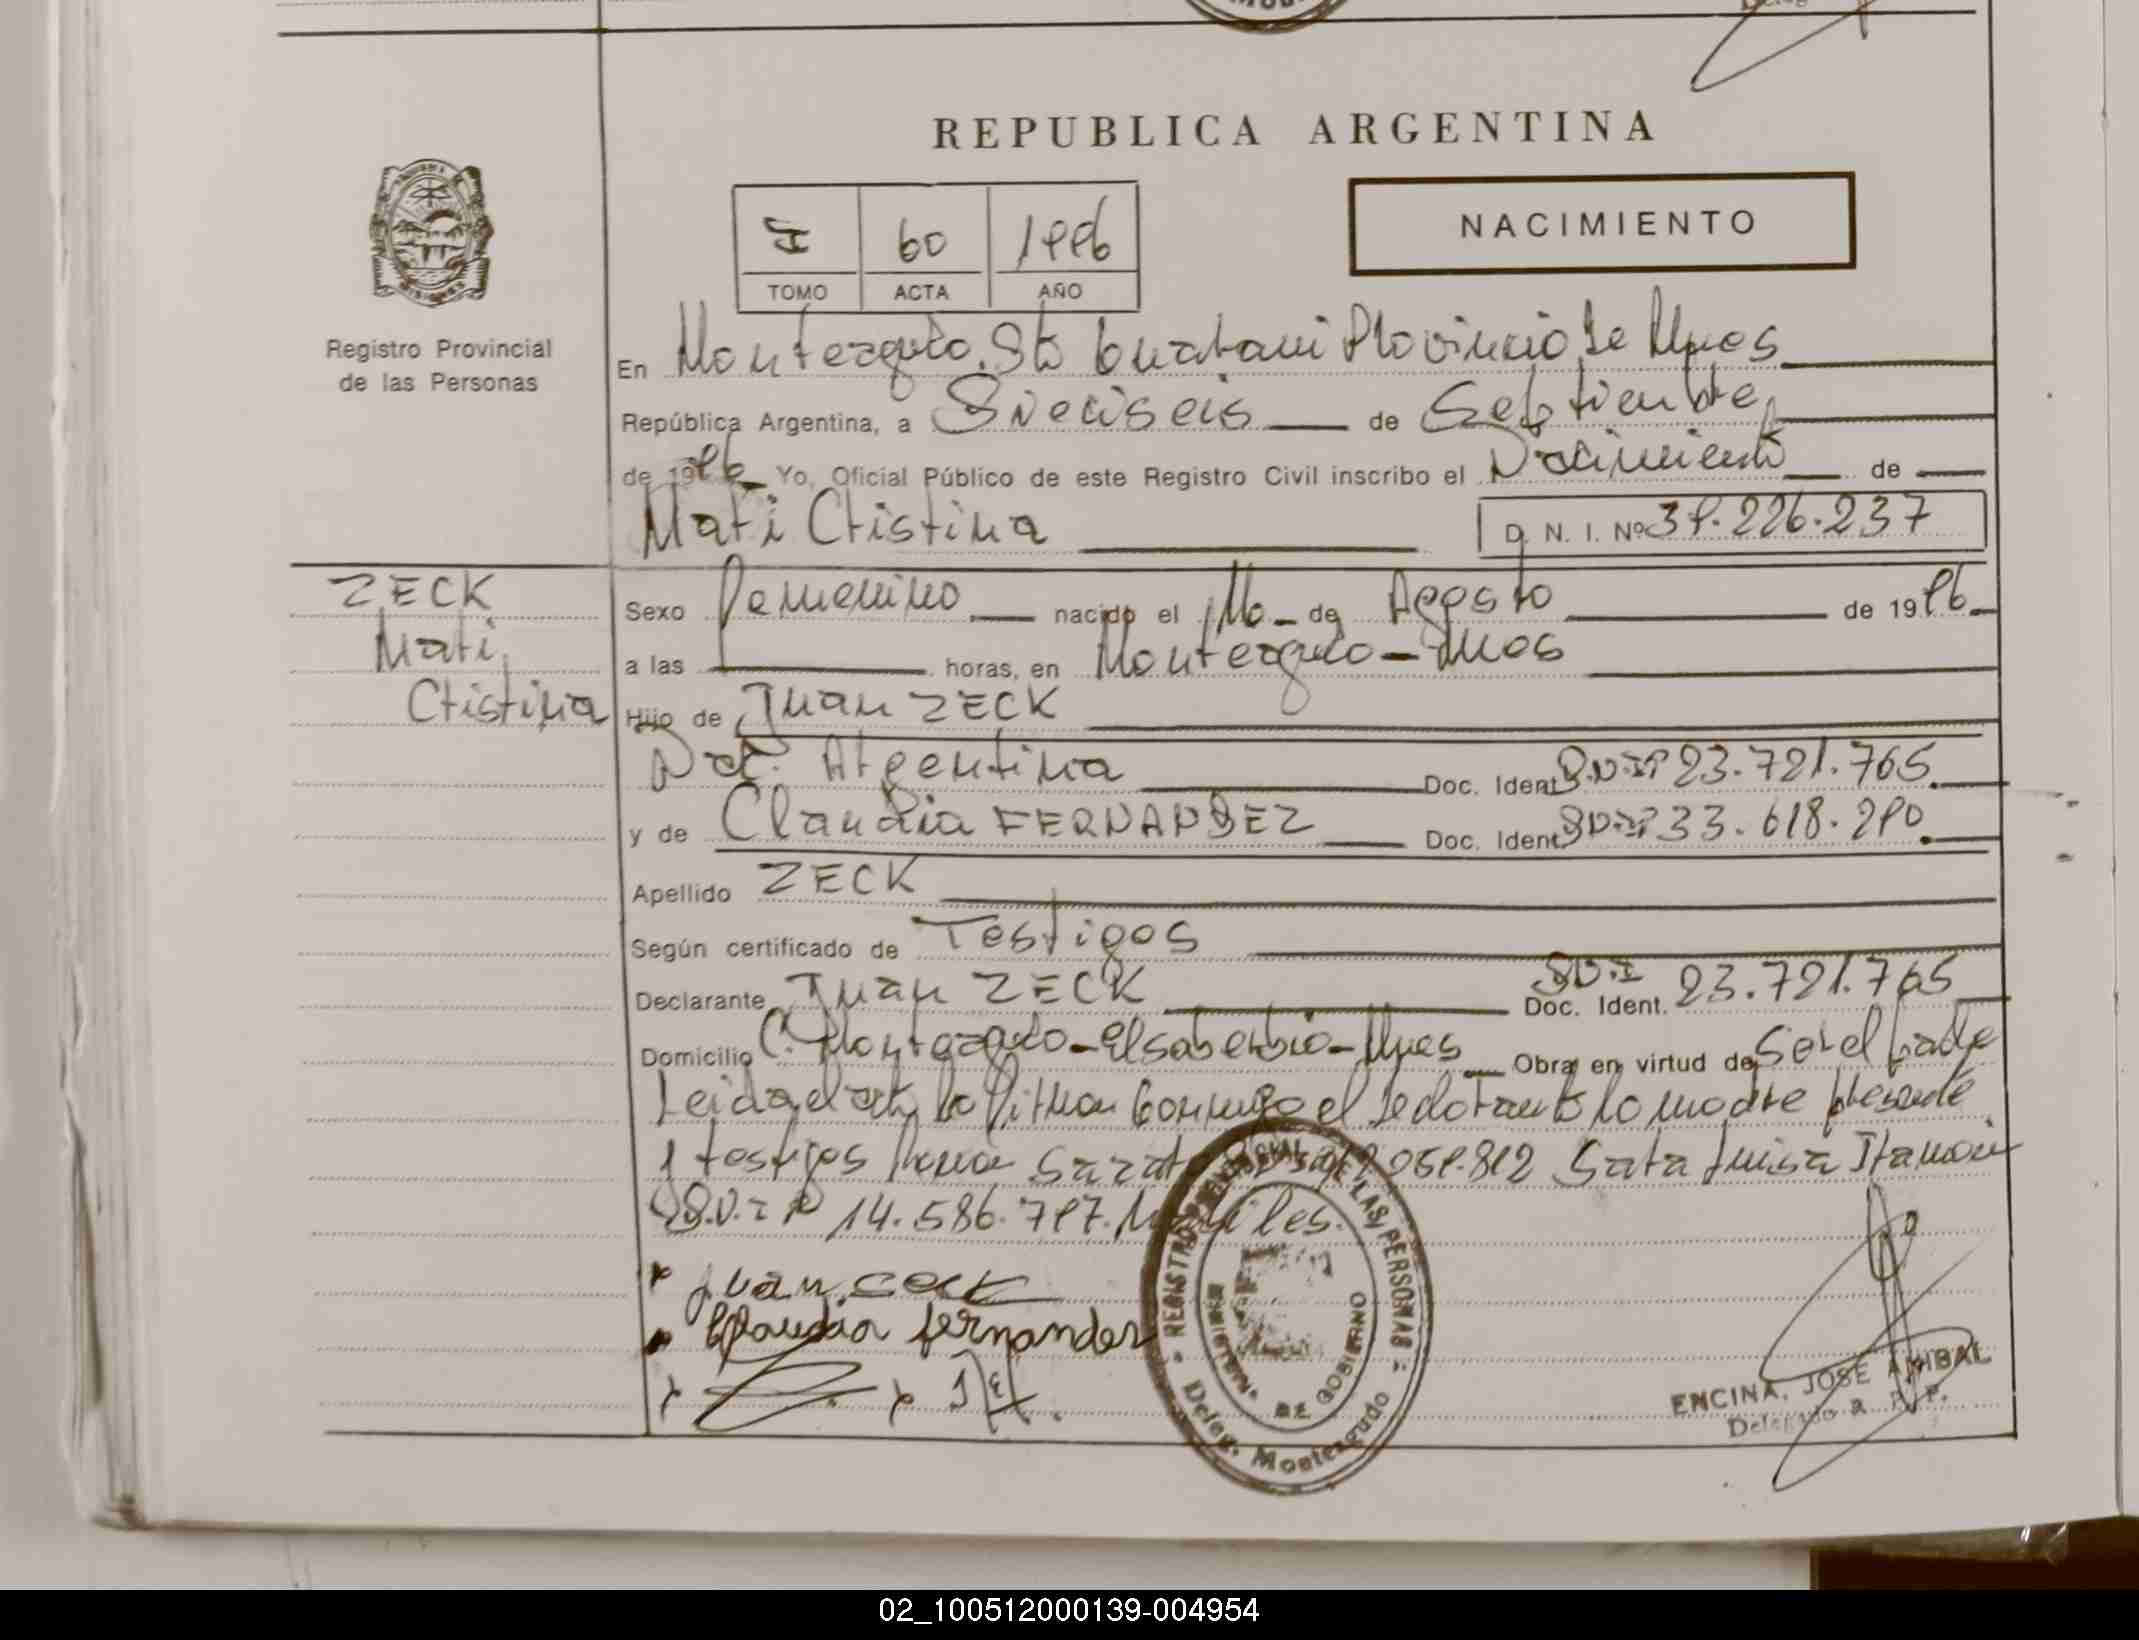 REPUBLICA ARGENTINA
TOMO
60 ACTA
1996 AÑO
NACIMIENTO
Registro Provincial
de las Personas
En Monteagudo Provincia de Mnes
República Argentina, a Dieciseis de Septiembre
de 1996 Yo, Oficial Público de este Registro Civil inscribo el Nacimiento de
Mari Cristina D. N. I. Nº 39.226.237
ZECK
Mari
Cristina
Sexo Femenino nacido el de Agosto de 1996
a las horas, en Monteagudo - Mnes
Hijo de Juan ZECK
Nac. Argentina Doc. Ident. D.N.I 23.721.765
y de Claudia FERNANDEZ Doc. Ident. D.N.I 33.618.290
Apellido ZECK
Según certificado de Testigos
Declarante Juan ZECK Doc. Ident. D.N.I 23.721.765
Domicilio C. Monteagudo - El soberbio - Mnes Obra en virtud de Ser el padre
Leida el acta la firman conmigo el declarante la madre presente
testigos Sara Luisa Ramon
D.N.I Nº 14.586.797.
Juan ceck
Claudia fernandez
REGISTRO PROVINCIAL DE LAS PERSONAS
MINISTERIO DE GOBIERNO
Deleg. Monteagudo
ENCINA, JOSE ANIBAL
Delegado R. P. P.
02_100512000139-004954